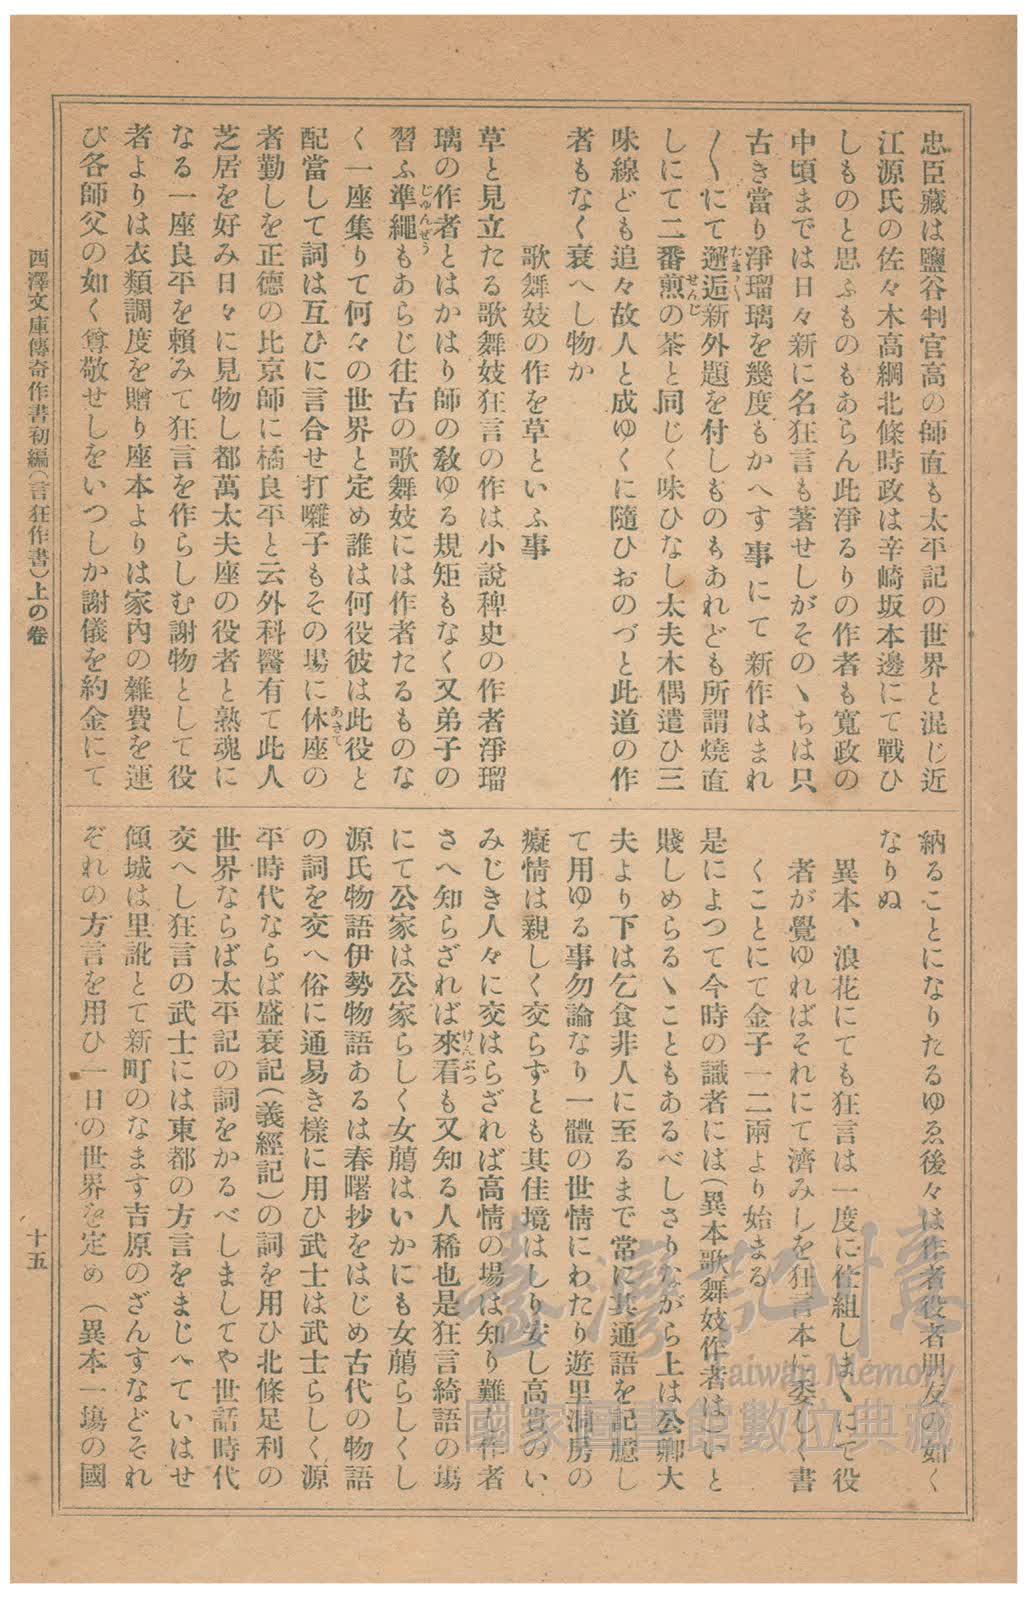 忠臣藏は鹽谷判官高の師直も太平記の世界と混じ近
江源氏の佐々木高綱北條時政は辛崎坂本邊にて戰ひ
しものと思ふものもあらん此淨るりの作者も寬政の
中頃までは日々新に名狂言も著せしがそのゝちは只
古き當り淨瑠璃を幾度もかへす事にて新作はまれ
〳〵にて邂逅新外題を付しものもあれども所謂燒直
たま〳〵
しにて二番煎の茶と同じく味ひなし太夫木偶遣ひ三
せんじ
味線ども追々故人と成ゆくに隨ひおのづと此道の作
者もなく衰へし物か
歌舞妓の作を草といふ事
草と見立たる歌舞妓狂言の作は小說稗史の作者淨瑠
璃の作者とはかはり師の敎ゆる規矩もなく又弟子の
習ふ準繩もあらじ往古の歌舞妓には作者たるものな
じゆんぜう
く一座集りて何々の世界と定め誰は何役彼は此役と
配當して詞は互ひに言合せ打囃子もその場に休座の
あきて
者勤しを正德の比京師に橘良平と云外科醫有て此人
芝居を好み日々に見物し都萬太夫座の役者と熟魂に
なる一座良平を賴みて狂言を作らしむ謝物として役
者よりは衣類調度を贈り座本よりは家內の雜費を運
び各師父の如く尊敬せしをいつしか謝儀を約金にて
納ることになりたるゆゑ後々は作者役者朋友の如く
なりぬ
異本、浪花にても狂言は一度に仕組しまくにて役
者が覺ゆればそれにて濟みしを狂言本に委しく書
くことにて金子一二兩より始まる
是によつて今時の識者には(異本歌舞妓作者は)いと
賤しめらるゝこともあるべしさりながら上は公卿大
夫より下は乞食非人に至るまで常に其通語を記臆し
て用ゆる事勿論なり一體の世情にわたり遊里洞房の
癡情は親しく交らずとも其佳境はしり安し高貴のい
みじき人々に交はらざれば高情の場は知り難し作者
さへ知らざれば來看も又知る人稀也是狂言綺語の場
けんぶつ
にて公家は公家らしく女﨟はいかにも女﨟らしくし
源氏物語伊勢物語あるは春曙抄をはじめ古代の物語
の詞を交へ俗に通易き樣に用ひ武士は武士らしく源
平時代ならば盛衰記(義經記)の詞を用ひ北條足利の
世界ならば太平記の詞をかるべしましてや世話時代
交へし狂言の武士には東都の方言をまじへていはせ
傾城は里訛とて新町のなます吉原のざんすなどそれ
ぞれの方言を用ひ一日の世界を定め(異本一塲の國
西澤文庫傳奇作書初編(言狂作書)上の卷
十五
臺灣記憶
Taiwan Memory
國家圖書館數位典藏